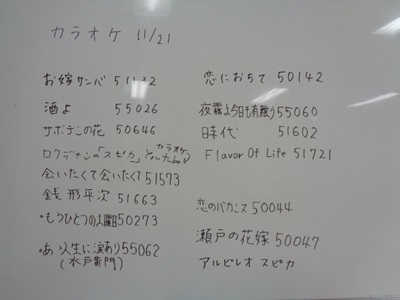 カラオケ 11/21
お嫁サンバ 51132
酒よ 55026
サボテンの花 50646
ロクデナシの「スピカ」 カラオケ
会いたくて会いたくて 51573
銭形平次 51663
もうひとつの土曜日 50273
あゝ人生に涙あり 55062
(水戸黄門)
恋におちて 50142
夜霧よ今日も有難う 55060
時代 51602
Flavor Of Life 51721
恋のバカンス 50044
瀬戸の花嫁 50047
アルビレオ スピカ